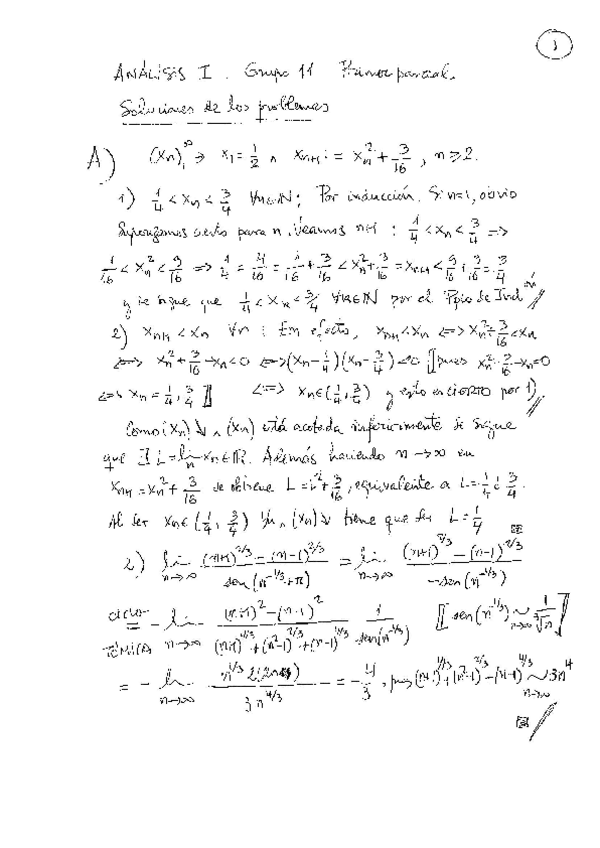 1
ANÁLISIS I. Grupo 11 Primer parcial.
Soluciones de los problemas
A) (xn)₁^∞ → x₁ = 1/2 ∧ xn+1 := xn² + 3/16, n ≥ 2.
1) 1/4 < xn < 3/4 ∀n∈ℕ: Por inducción. Si n=1, obvio
Supongamos cierto para n. Veamos n+1: 1/4 < xn < 3/4 =>
1/16 < xn² < 9/16 => 1/4 = 4/16 = 1/16 + 3/16 < xn² + 3/16 = xn+1 < 9/16 + 3/16 = 3/4
y se sigue que 1/4 < xn < 3/4 ∀n∈ℕ por el Ppio de Indón //
2) xn+1 < xn ∀n: En efecto, xn+1 < xn <=> xn² + 3/16 < xn
<=> xn² + 3/16 - xn < 0 <=> (xn - 1/4)(xn - 3/4) < 0 [[pues xn² + 3/16 - xn = 0
<=> xn = 1/4, 3/4]] <=> xn ∈ (1/4, 3/4) y esto es CIERTO por 1) //
Como (xn)↓ ∧ (xn) está acotada inferiormente se sigue
que ∃ L = lim xn ∈ ℝ. Además haciendo n → ∞ en
xn+1 = xn² + 3/16 se obtiene L = L² + 3/16, equivalente a L = 1/4 ó 3/4.
Al ser xn ∈ (1/4, 3/4) ∀n ∧ (xn)↓ tiene que ser L = 1/4
2) lim n→∞ ((n+1)^2/3 - (n-1)^2/3) / sen(n^-1/3 + π) = lim n→∞ ((n+1)^2/3 - (n-1)^2/3) / -sen(n^-1/3)
= - lim n→∞ ((n+1)² - (n-1)²) / ((n+1)^4/3 + (n²-1)^2/3 + (n-1)^4/3) 1/sen(n^-1/3) [[sen(n^-1/3) ~ n→∞ 1/∛n]]
= - lim n→∞ n^1/3 2(2n) / 3n^4/3 = - 4/3, pues (n+1)^4/3 + (n²-1)^2/3 - (n-1)^4/3 ~ n→∞ 3n^4